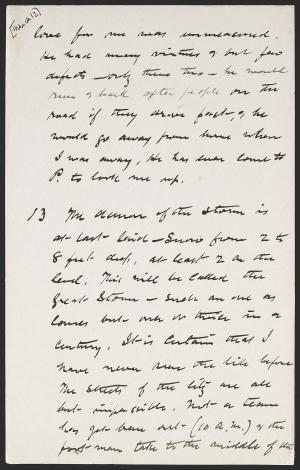 [March 12]
love for me was unmeasured.
He had many virtues & but few
defects – only these two – he would
run & bark after people on the
road if they drove past, & he
would go away from home when
I was away. He has even come to
P. to look me up.
13 The demon of the storm is
at last laid – Snow from 2 to
8 feet deep, at least 2 on the
level. This will be called the
Great Storm – Such an one as
comes but once or thrice in a
century. It is certain that I
have never seen the like before
The streets of the city are all
but impassible. Not a team
has yet been out – (10 A.M.) & the
foot-men take to the middle of the